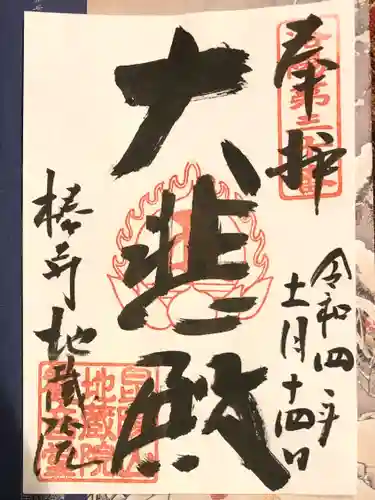 奉拝
大悲殿
椿寺 地蔵院
令和四年
十一月十四日
昆陽山
地蔵院